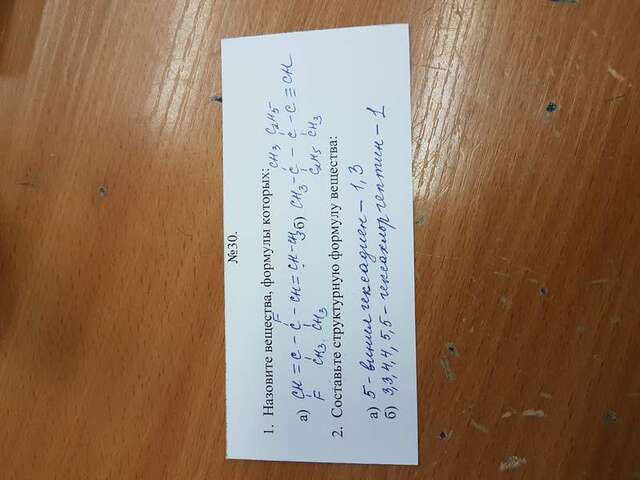 №30.
1. Назовите вещества, формулы которых:
F CH3 C2H5
а) CH = C - C - CH = CH - CH3 б) CH3 - C - C - C ≡ CH
F CH3 CH3 C2H5 CH3
2. Составьте структурную формулу вещества:
а) 5 - винилгексадиен - 1,3
б) 3,3,4,4,5,5 - гексахлоргептин - 1